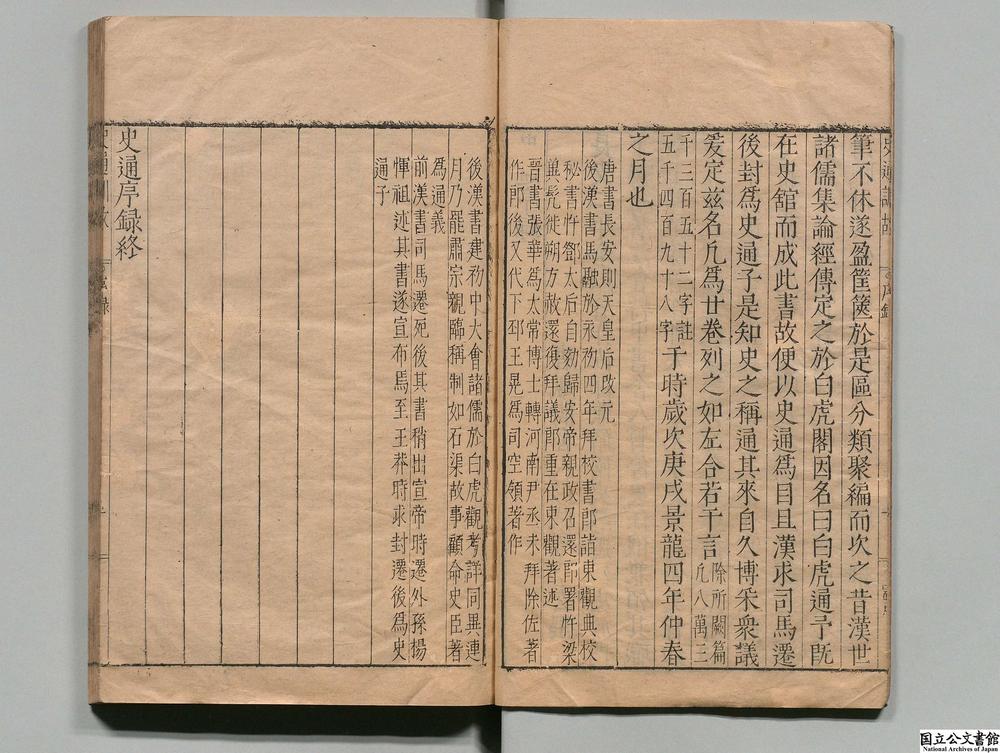 筆不休遂盈筐篋於是區分類聚編而次之昔漢世
諸儒集論經傳定之於白虎閣因名曰白虎通予既
在史舘而成此書故便以史通爲目且漢求司馬遷
後封爲史通子是知史之稱通其來自久博采衆議
爰定兹名凡爲廿卷列之如左合若干言
除所闕篇
凡八萬三
千三百五十二字註
五千四百九十八字
于時歲次庚戌景龍四年仲春
之月也
唐書長安則天皇后改元
後漢書馬融於永初四年拜校書郎詣東觀典校
秘書忤鄧太后自劾歸安帝親政召還郎署忤梁
兾髠徙朔方赦還復拜議郎重在東觀著述
晉書張華爲太常博士轉河南尹丞未拜除佐著
作郎後又代下邳王晃爲司空領著作
後漢書建初中大會諸儒於白虎觀考詳同異連
月乃罷肅宗親臨稱制如石渠故事顧命史臣著
爲通義
前漢書司馬遷死後其書稍出宣帝時遷外孫楊
惲祖述其書遂宣布焉至王莽時求封遷後爲史
通子
史通序録終
国立公文書館
National Archives of Japan